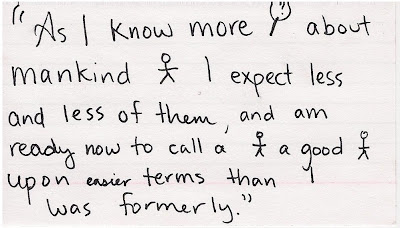 "As I know more about
mankind I expect less
and less of them, and am
ready now to call a a good
upon easier terms than I
was formerly."